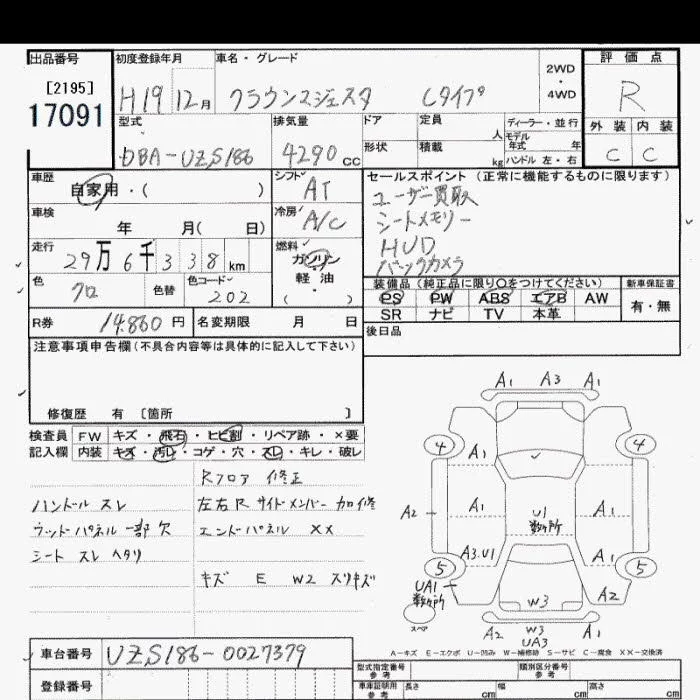 出品番号
[2195]
17091
初度登録年月
H19 12月
車名・グレード
クラウンマジェスタ Cタイプ
2WD
・
4WD
評価点
R
外装 内装
C C
型式
DBA-UZS186
排気量
4290 cc
ドア
形状
定員 人
積載 kg
ディーラー・並行
モデル
年式 年
ハンドル 左・右
車歴
自家用・( )
車検
年 月( 日)
走行
29万6千338km
色
クロ
色替
色コード
202
シフト
AT
冷房
A/C
燃料
ガソリン
軽・油
( )
セールスポイント (正常に機能するものに限ります)
ユーザー買取
シートメモリー
HUD
バックカメラ
装備品 (純正品に限り○をつけてください)
PS PW ABS エアB AW
SR ナビ TV 本革
新車保証書
有・無
後日品
R券 14,860円
名変期限 月 日
注意事項申告欄(不具合内容等は具体的に記入して下さい)
修復歴 有 [箇所 ]
検査員
記入欄
FW キズ・飛石・ヒビ割・リペア跡・×要
内装 キズ・汚レ・コゲ・穴・スレ・キレ・破レ
Rフロア 修正
ハンドル スレ
左右R サイドメンバー 加修
ウッドパネル 一部 欠
エンドパネル XX
シート スレ ヘタリ
キズ E W2 スリキズ
A1 A3 A1
4 4
A1
A2 A1 U1 数ヶ所 A1
A3.U1 A1
5 5
UA1 数ヶ所
W3 A2
スペア
A2 W3 A1
UA3
A-キズ E-エクボ U-凹み W-補修跡 S-サビ C-腐食 XX-交換済
車台番号 UZS186-0027379
登録番号
型式指定番号
参考
類別区分番号
参考
車庫証明用
参考
長さ cm
幅 cm
高さ cm